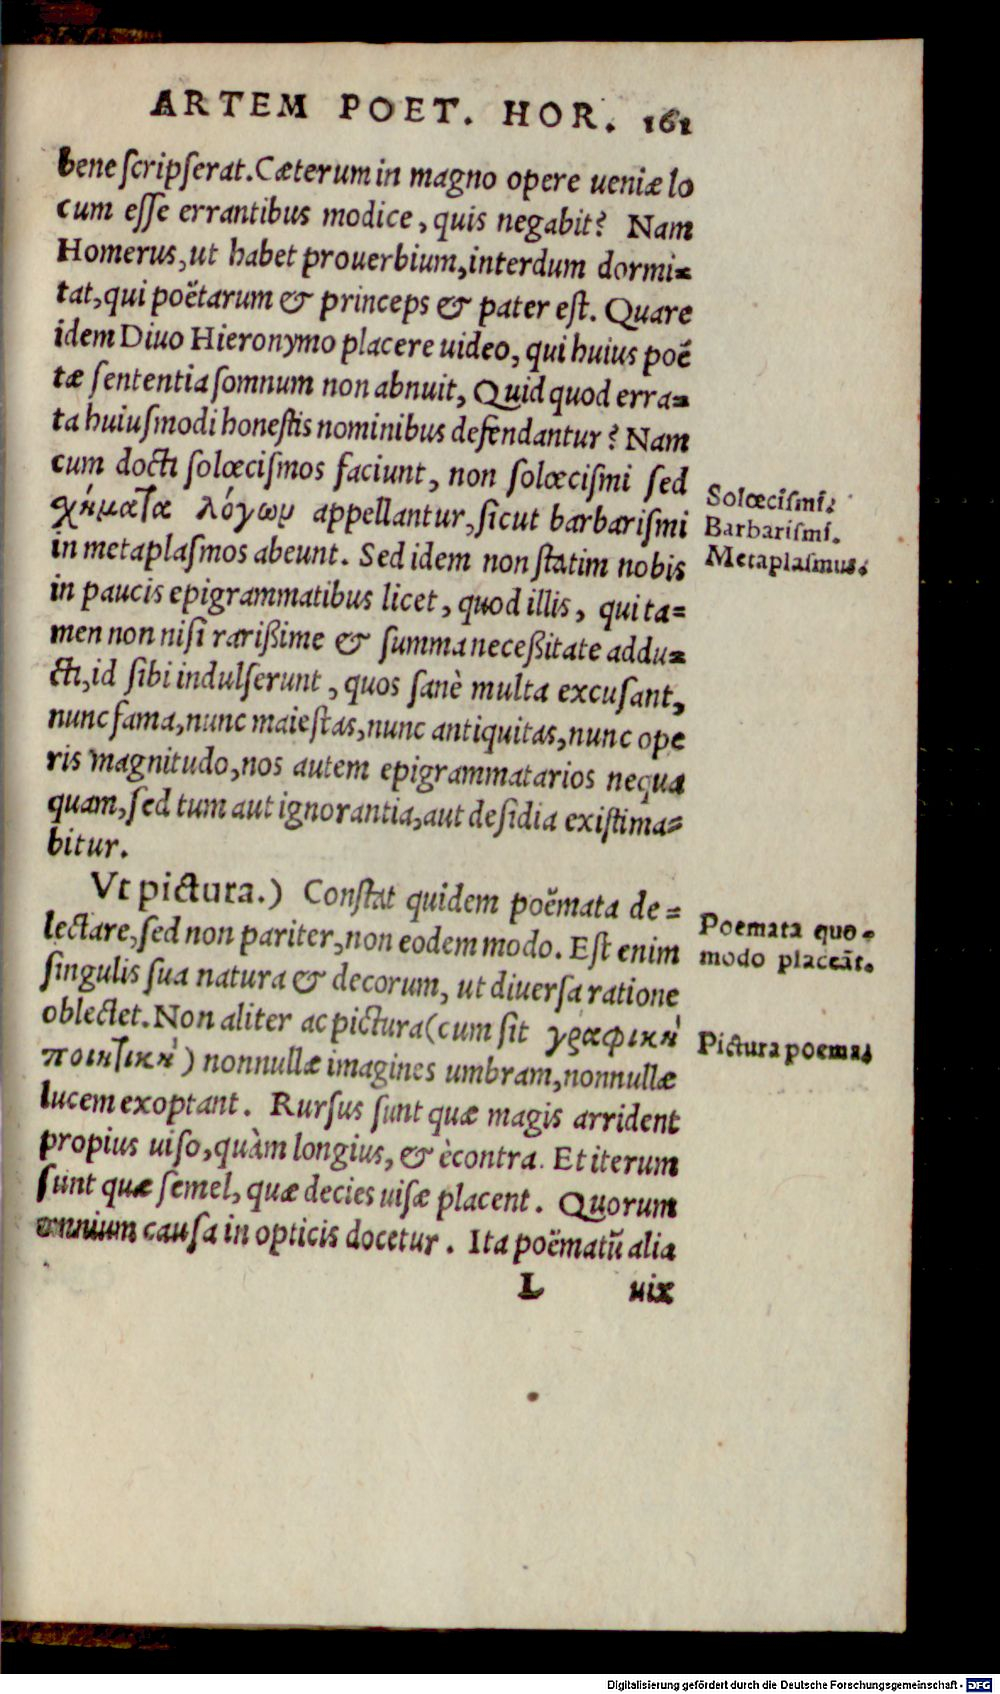 ARTEM POET. HOR. 161
bene ſcripſerat. Cæterum in magno opere ueniæ lo
cum eſſe errantibus modice, quis negabit? Nam
Homerus, ut habet prouerbium, interdum dormi=
tat, qui poëtarum & princeps & pater eſt. Quare
idem Diuo Hieronymo placere uideo, qui huius poë
tæ ſententia ſomnum non abnuit, Quid quod erra=
ta huiuſmodi honeſtis nominibus defendantur? Nam
cum docti ſolœciſmos faciunt, non ſolœciſmi ſed
Solœciſmi.
χήματα λόγων appellantur, ſicut barbariſmi
Barbariſmi.
in metaplaſmos abeunt. Sed idem non ſtatim nobis
Metaplaſmus.
in paucis epigrammatibus licet, quod illis, qui ta=
men non niſi rarißime & ſumma neceßitate addu=
cti, id ſibi indulſerunt, quos ſanè multa excuſant,
nunc fama, nunc maieſtas, nunc antiquitas, nunc ope
ris magnitudo, nos autem epigrammatarios nequa
quam, ſed tum aut ignorantia, aut deſidia exiſtima=
bitur.
Vt pictura.) Conſtat quidem poëmata de=
Poemata quo-
lectare, ſed non pariter, non eodem modo. Eſt enim
modo placeāt.
ſingulis ſua natura & decorum, ut diuerſa ratione
oblectet. Non aliter ac pictura (cum ſit γραφικὴ
Pictura poema.
ποιητικὴ) nonnullæ imagines umbram, nonnullæ
lucem exoptant. Rurſus ſunt quæ magis arrident
propius uiſo, quàm longius, & ècontra. Et iterum
ſunt quæ ſemel, quæ decies uiſæ placent. Quorum
omnium cauſa in opticis docetur. Ita poëmatū alia
L uix
Digitalisierung gefördert durch die Deutsche Forschungsgemeinschaft - DFG